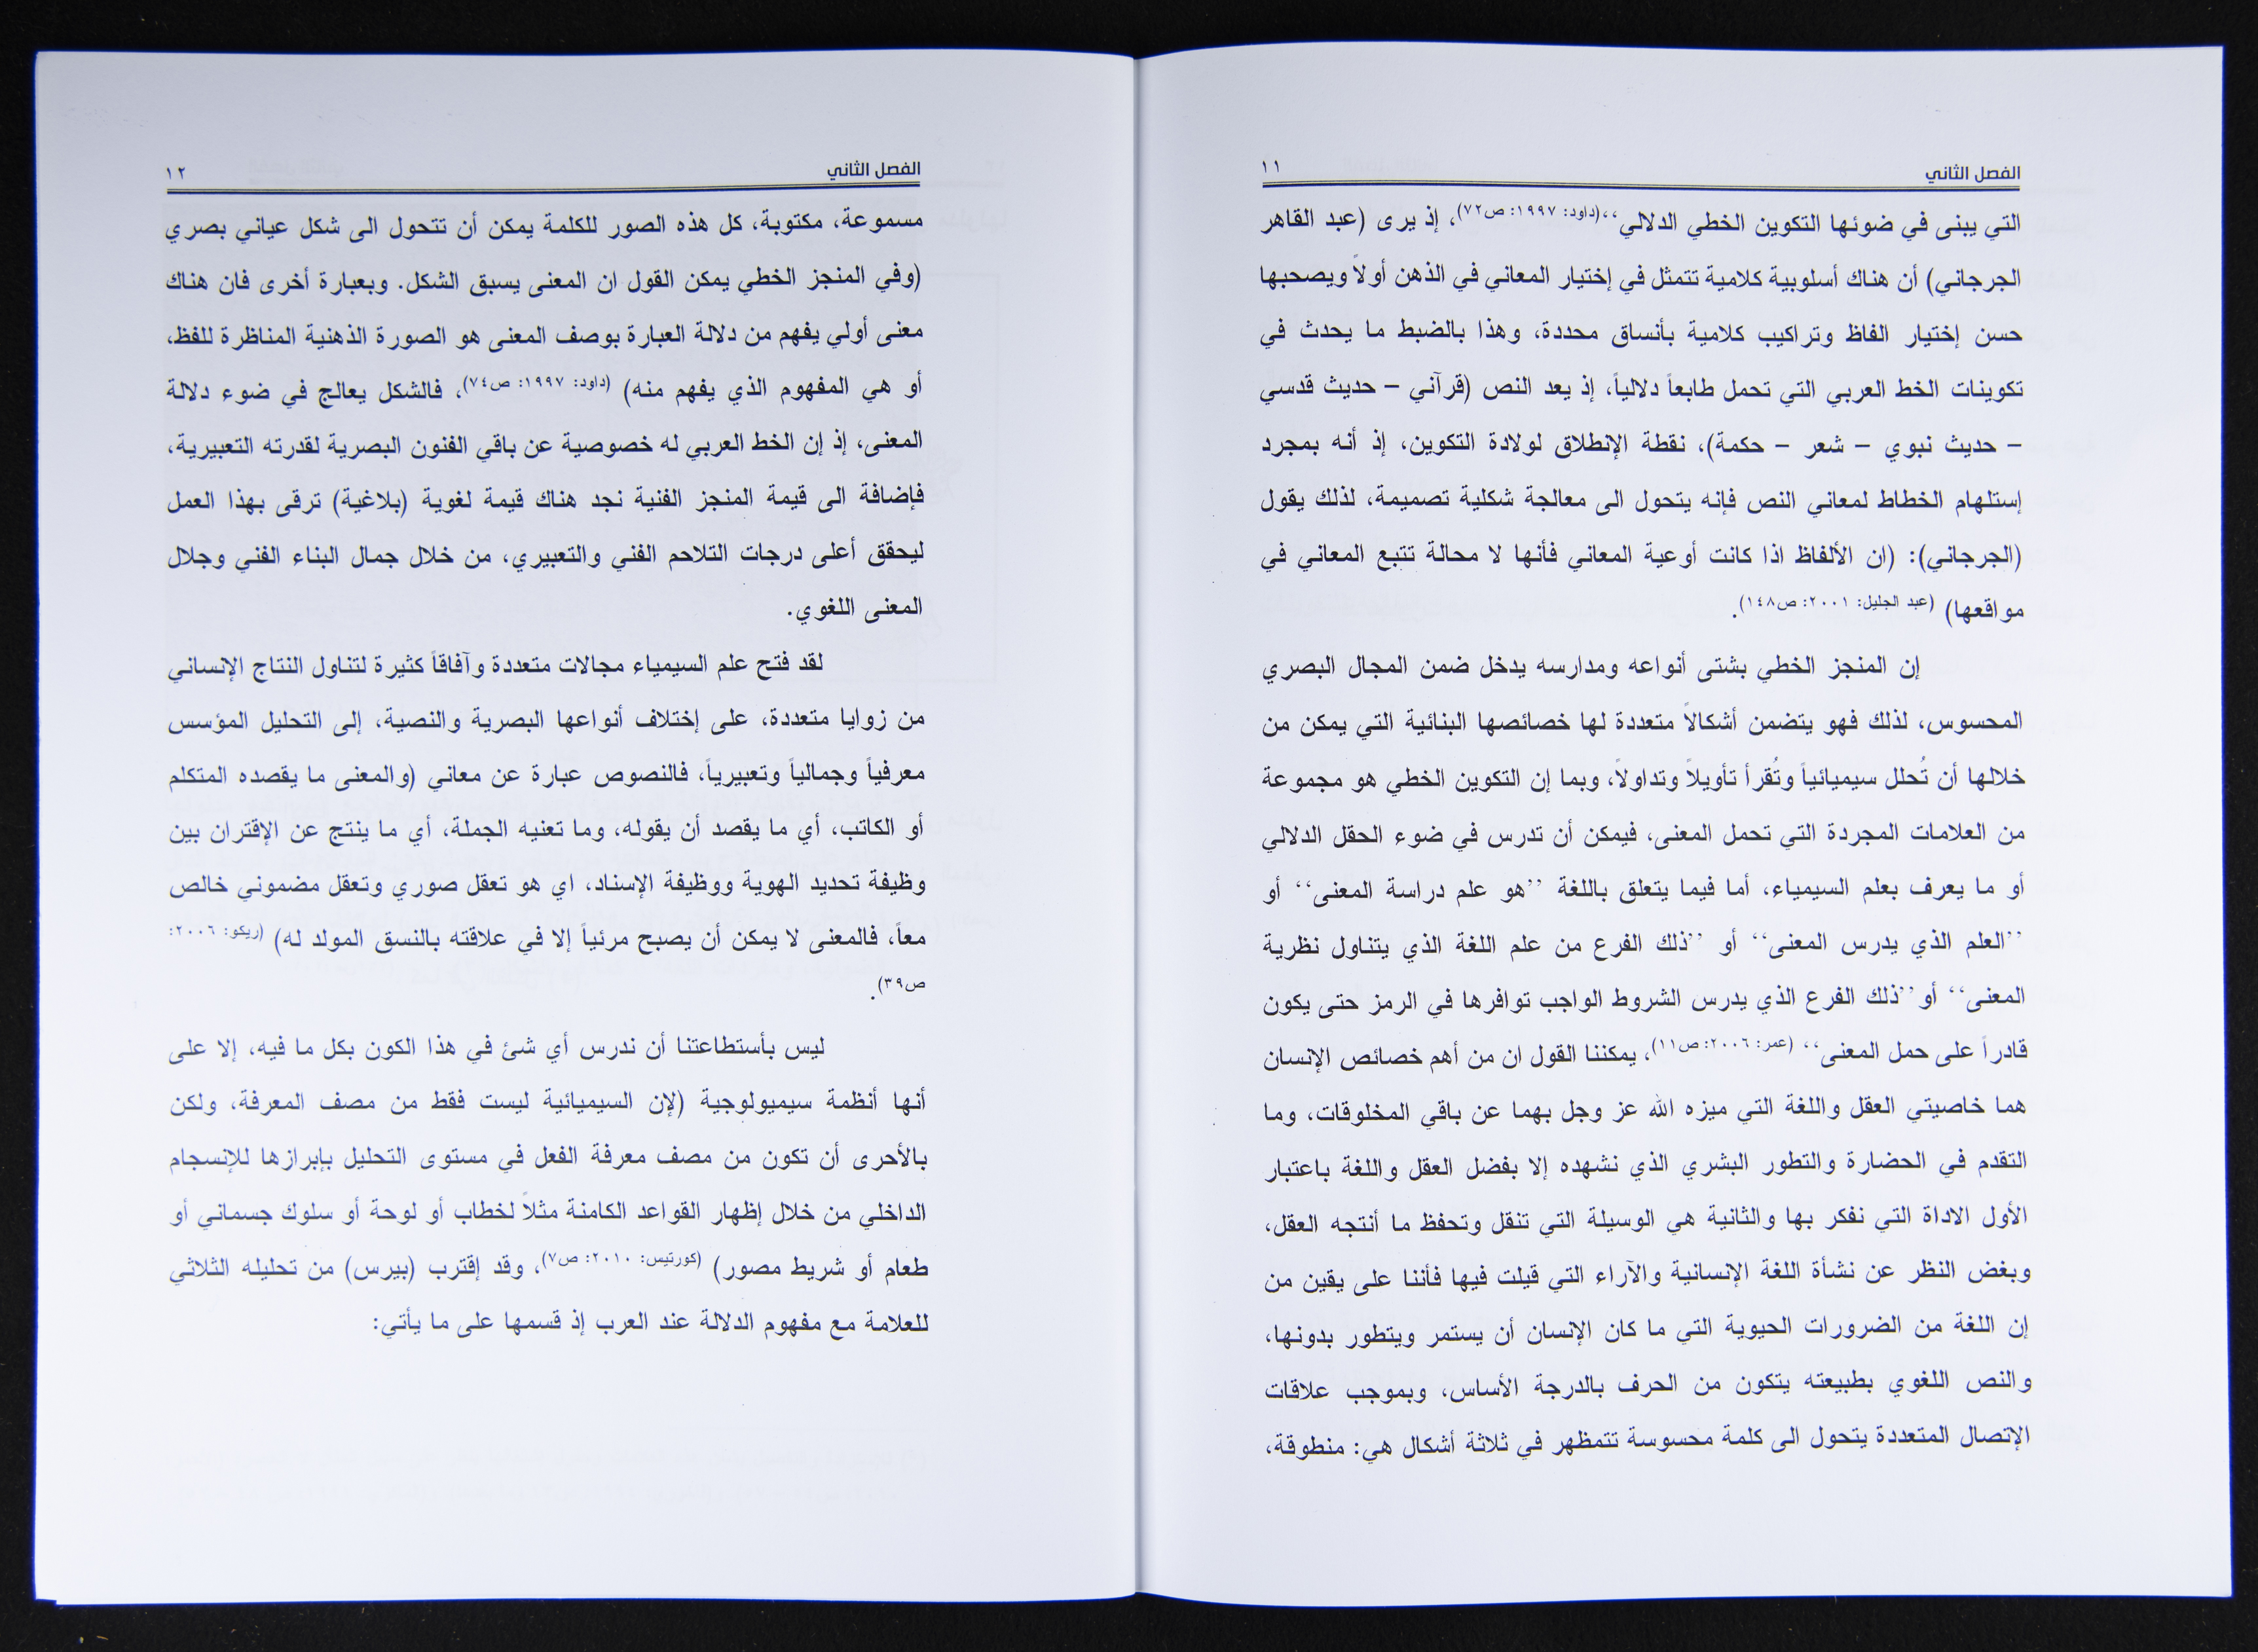 الفصل الثاني ١١
التي يبنى في ضوئها التكوين الخطي الدلالي“(داود: ١٩٩٧: ص٧٢)، إذ يرى (عبد القاهر
الجرجاني) أن هناك أسلوبية كلامية تتمثل في إختيار المعاني في الذهن أولاً ويصحبها
حسن إختيار الفاظ وتراكيب كلامية بأنساق محددة، وهذا بالضبط ما يحدث في
تكوينات الخط العربي التي تحمل طابعاً دلالياً، إذ يعد النص (قرآني – حديث قدسي
– حديث نبوي – شعر – حكمة)، نقطة الإنطلاق لولادة التكوين، إذ أنه بمجرد
إستلهام الخطاط لمعاني النص فإنه يتحول الى معالجة شكلية تصميمة، لذلك يقول
(الجرجاني): (ان الألفاظ اذا كانت أوعية المعاني فأنها لا محالة تتبع المعاني في
مواقعها) (عبد الجليل: ٢٠٠١: ص١٤٨).
إن المنجز الخطي بشتى أنواعه ومدارسه يدخل ضمن المجال البصري
المحسوس، لذلك فهو يتضمن أشكالاً متعددة لها خصائصها البنائية التي يمكن من
خلالها أن تُحلل سيميائياً وتُقرأ تأويلاً وتداولاً، وبما إن التكوين الخطي هو مجموعة
من العلامات المجردة التي تحمل المعنى، فيمكن أن تدرس في ضوء الحقل الدلالي
أو ما يعرف بعلم السيمياء، أما فيما يتعلق باللغة ”هو علم دراسة المعنى“ أو
”العلم الذي يدرس المعنى“ أو ”ذلك الفرع من علم اللغة الذي يتناول نظرية
المعنى“ أو ”ذلك الفرع الذي يدرس الشروط الواجب توافرها في الرمز حتى يكون
قادراً على حمل المعنى“ (عمر: ٢٠٠٦: ص١١)، يمكننا القول ان من أهم خصائص الإنسان
هما خاصيتي العقل واللغة التي ميزه الله عز وجل بهما عن باقي المخلوقات، وما
التقدم في الحضارة والتطور البشري الذي نشهده إلا بفضل العقل واللغة باعتبار
الأول الاداة التي نفكر بها والثانية هي الوسيلة التي تنقل وتحفظ ما أنتجه العقل،
وبغض النظر عن نشأة اللغة الإنسانية والآراء التي قيلت فيها فأننا على يقين من
إن اللغة من الضرورات الحيوية التي ما كان الإنسان أن يستمر ويتطور بدونها،
والنص اللغوي بطبيعته يتكون من الحرف بالدرجة الأساس، وبموجب علاقات
الإتصال المتعددة يتحول الى كلمة محسوسة تتمظهر في ثلاثة أشكال هي: منطوقة،
الفصل الثاني ١٢
مسموعة، مكتوبة، كل هذه الصور للكلمة يمكن أن تتحول الى شكل عياني بصري
(وفي المنجز الخطي يمكن القول ان المعنى يسبق الشكل. وبعبارة أخرى فان هناك
معنى أولي يفهم من دلالة العبارة بوصف المعنى هو الصورة الذهنية المناظرة للفظ،
أو هي المفهوم الذي يفهم منه) (داود: ١٩٩٧: ص٧٤)، فالشكل يعالج في ضوء دلالة
المعنى، إذ إن الخط العربي له خصوصية عن باقي الفنون البصرية لقدرته التعبيرية،
فإضافة الى قيمة المنجز الفنية نجد هناك قيمة لغوية (بلاغية) ترقى بهذا العمل
ليحقق أعلى درجات التلاحم الفني والتعبيري، من خلال جمال البناء الفني وجلال
المعنى اللغوي.
لقد فتح علم السيمياء مجالات متعددة وآفاقاً كثيرة لتناول النتاج الإنساني
من زوايا متعددة، على إختلاف أنواعها البصرية والنصية، إلى التحليل المؤسس
معرفياً وجمالياً وتعبيرياً، فالنصوص عبارة عن معاني (والمعنى ما يقصده المتكلم
أو الكاتب، أي ما يقصد أن يقوله، وما تعنيه الجملة، أي ما ينتج عن الإقتران بين
وظيفة تحديد الهوية ووظيفة الإسناد، اي هو تعقل صوري وتعقل مضموني خالص
معاً، فالمعنى لا يمكن أن يصبح مرئياً إلا في علاقته بالنسق المولد له) (ريكو: ٢٠٠٦:
ص٣٩).
ليس بأستطاعتنا أن ندرس أي شئ في هذا الكون بكل ما فيه، إلا على
أنها أنظمة سيميولوجية (لإن السيميائية ليست فقط من مصف المعرفة، ولكن
بالأحرى أن تكون من مصف معرفة الفعل في مستوى التحليل بإبرازها للإنسجام
الداخلي من خلال إظهار القواعد الكامنة مثلاً لخطاب أو لوحة أو سلوك جسماني أو
طعام أو شريط مصور) (كورتيس: ٢٠١٠: ص٧)، وقد إقترب (بيرس) من تحليله الثلاثي
للعلامة مع مفهوم الدلالة عند العرب إذ قسمها على ما يأتي: